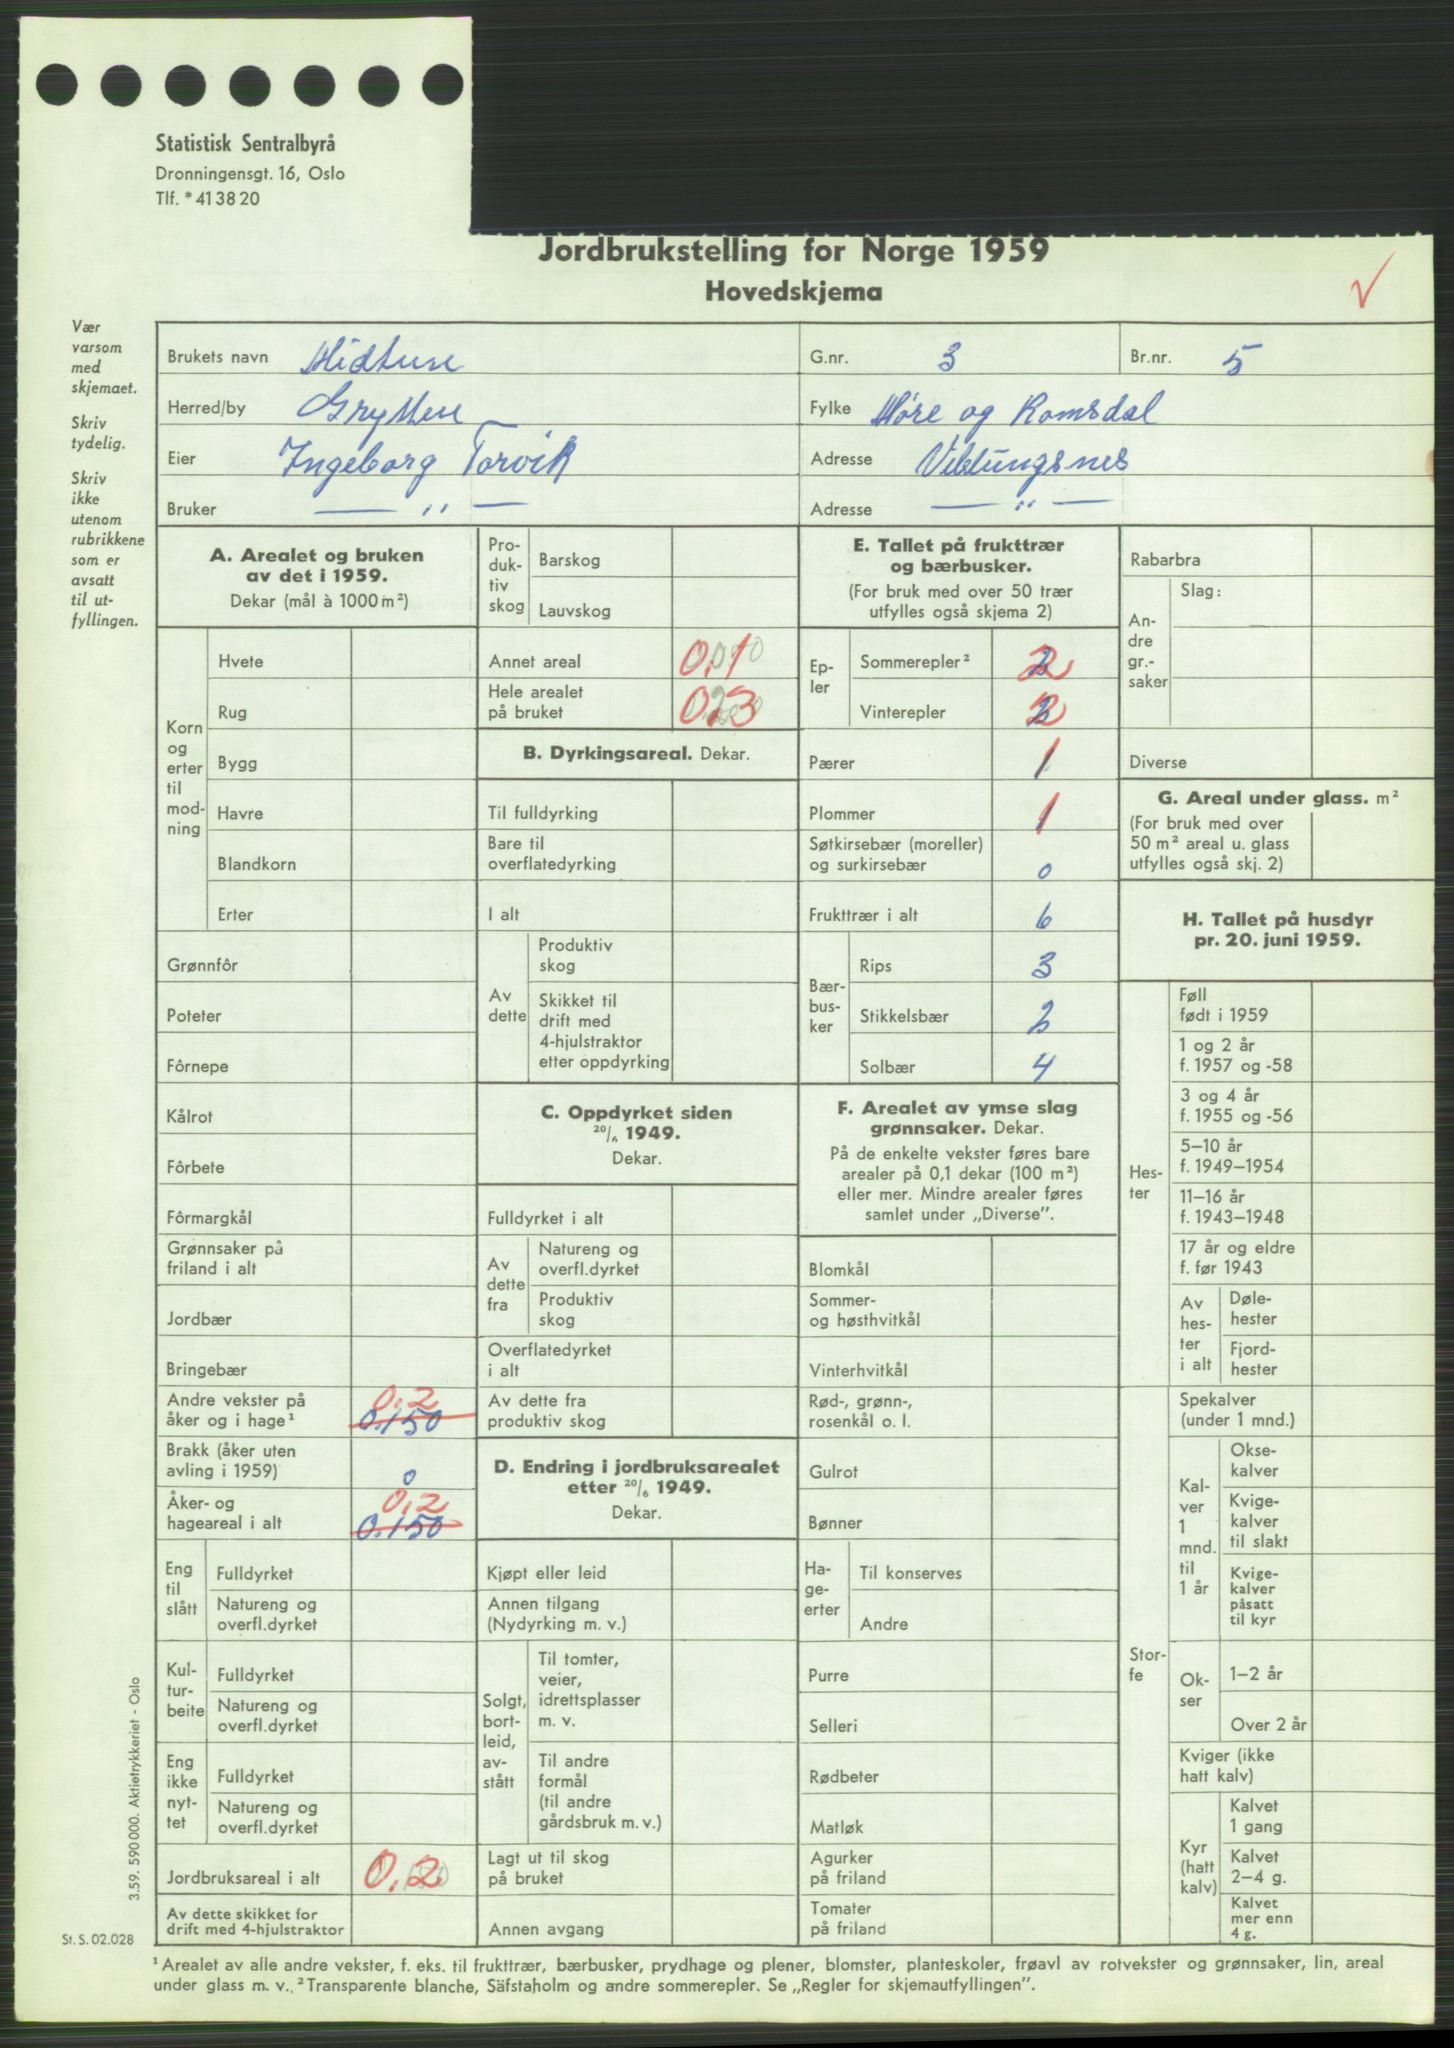 Statistisk Sentralbyrå
Dronningensgt. 16, Oslo
Tlf. * 41 38 20
Jordbrukstelling for Norge 1959
Hovedskjema
√
Vær
varsom
med
skjemaet.
Skriv
tydelig.
Skriv
ikke
utenom
rubrikkene
som er
avsatt
til ut-
fyllingen.
Brukets navn Midtun G.nr. 3 Br.nr. 5
Herred/by Grytten Fylke Møre og Romsdal
Eier Ingeborg Torvik Adresse Veblungsnes
Bruker — " — Adresse — " —
A. Arealet og bruken
av det i 1959.
Dekar (mål à 1000 m²)
Korn
og
erter
til
mod-
ning
Hvete
Rug
Bygg
Havre
Blandkorn
Erter
Grønnfôr
Poteter
Fôrnepe
Kålrot
Fôrbete
Fôrmargkål
Grønnsaker på
friland i alt
Jordbær
Bringebær
Andre vekster på 0,2
åker og i hage¹ 0.150
Brakk (åker uten
avling i 1959) 0
Åker- og 0,2
hageareal i alt 0.150
Eng
til
slått
Fulldyrket
Natureng og
overfl.dyrket
Kul-
tur-
beite
Fulldyrket
Natureng og
overfl.dyrket
Eng
ikke
nyt-
tet
Fulldyrket
Natureng og
overfl.dyrket
Jordbruksareal i alt 0,2
Av dette skikket for
drift med 4-hjulstraktor
Pro-
duk-
tiv
skog
Barskog
Lauvskog
Annet areal 0,1
Hele arealet
på bruket 0,3
B. Dyrkingsareal. Dekar.
Til fulldyrking
Bare til
overflatedyrking
I alt
Av
dette
Produktiv
skog
Skikket til
drift med
4-hjulstraktor
etter oppdyrking
C. Oppdyrket siden
20/6 1949.
Dekar.
Fulldyrket i alt
Av
dette
fra
Natureng og
overfl.dyrket
Produktiv
skog
Overflatedyrket
i alt
Av dette fra
produktiv skog
D. Endring i jordbruksarealet
etter 20/6 1949.
Dekar.
Kjøpt eller leid
Annen tilgang
(Nydyrking m. v.)
Solgt,
bort-
leid,
av-
stått
Til tomter,
veier,
idrettsplasser
m. v.
Til andre
formål
(til andre
gårdsbruk m. v.)
Lagt ut til skog
på bruket
Annen avgang
E. Tallet på frukttrær
og bærbusker.
(For bruk med over 50 trær
utfylles også skjema 2)
Ep-
ler
Sommerepler² 2
Vinterepler 2
Pærer 1
Plommer 1
Søtkirsebær (moreller)
og surkirsebær 0
Frukttrær i alt 6
Bær-
bus-
ker
Rips 3
Stikkelsbær 2
Solbær 4
F. Arealet av ymse slag
grønnsaker. Dekar.
På de enkelte vekster føres bare
arealer på 0,1 dekar (100 m²)
eller mer. Mindre arealer føres
samlet under „Diverse”.
Blomkål
Sommer-
og høsthvitkål
Vinterhvitkål
Rød-, grønn-,
rosenkål o. l.
Gulrot
Bønner
Ha-
ge-
erter
Til konserves
Andre
Purre
Selleri
Rødbeter
Matløk
Agurker
på friland
Tomater
på friland
Rabarbra
An-
dre
gr.-
saker
Slag:
Diverse
G. Areal under glass. m²
(For bruk med over
50 m² areal u. glass
utfylles også skj. 2)
H. Tallet på husdyr
pr. 20. juni 1959.
Hes-
ter
Føll
født i 1959
1 og 2 år
f. 1957 og -58
3 og 4 år
f. 1955 og -56
5–10 år
f. 1949–1954
11–16 år
f. 1943–1948
17 år og eldre
f. før 1943
Av
hes-
ter
i alt
Døle-
hester
Fjord-
hester
Stor-
fe
Spekalver
(under 1 mnd.)
Kal-
ver
1
mnd.
til
1 år
Okse-
kalver
Kvige-
kalver
til slakt
Kvige-
kalver
påsatt
til kyr
Ok-
ser
1–2 år
Over 2 år
Kviger (ikke
hatt kalv)
Kyr
(hatt
kalv)
Kalvet
1 gang
Kalvet
2–4 g.
Kalvet
mer enn
4 g.
3.59. 590 000. Aktietrykkeriet - Oslo
St. S. 02.028
¹ Arealet av alle andre vekster, f. eks. til frukttrær, bærbusker, prydhage og plener, blomster, planteskoler, frøavl av rotvekster og grønnsaker, lin, areal
under glass m. v. ² Transparente blanche, Säfstaholm og andre sommerepler. Se „Regler for skjemautfyllingen”.